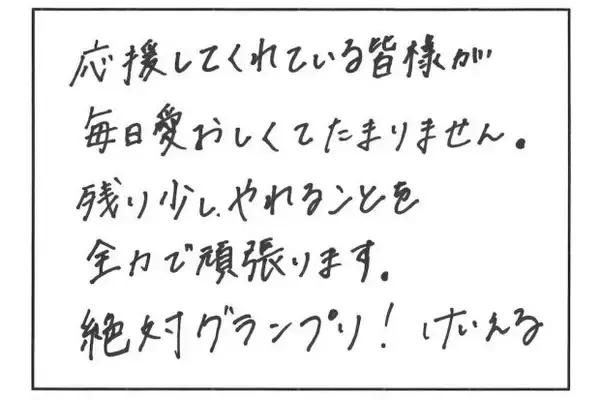 応援してくれている皆様が
毎日愛おしくてたまりません。
残り少し、やれることを
全力で頑張ります。
絶対グランプリ！ けいえる